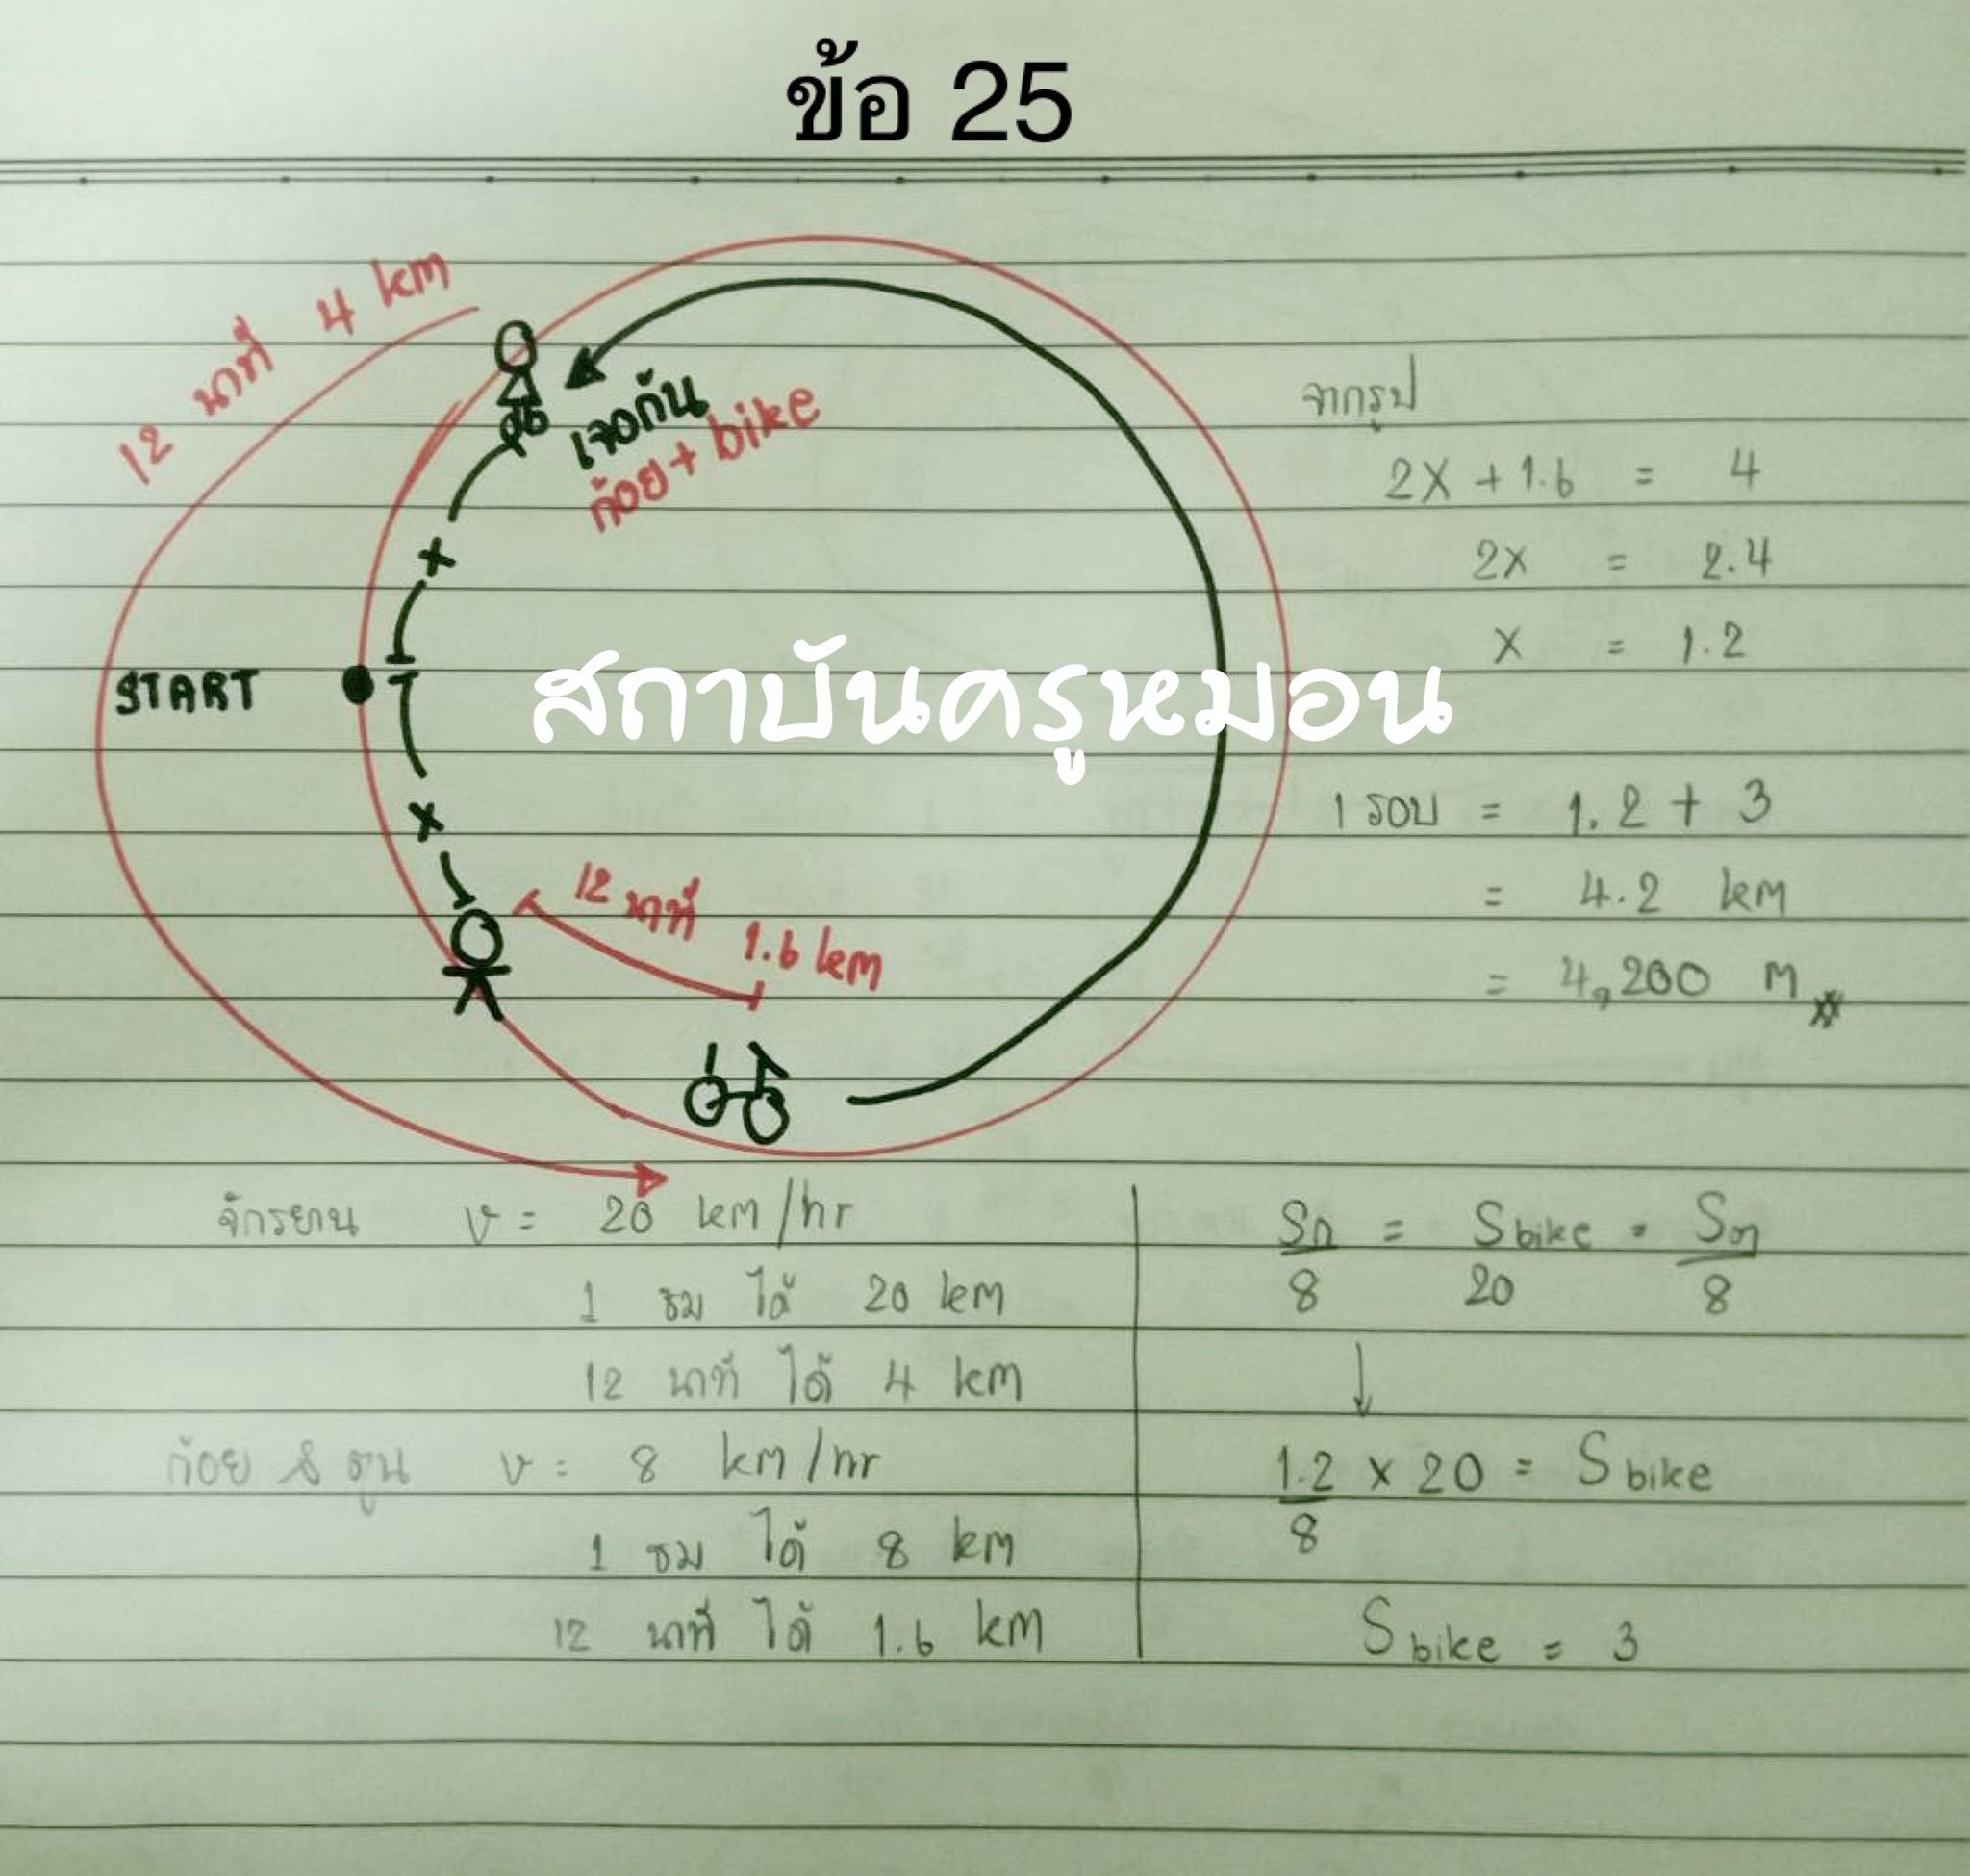 ข้อ 25
12 นาที 4 km
เจอกัน
ก้อย + bike
x
START
x
12 นาที 1.6 km
สถาบันครูหมอน
จากรูป
2x + 1.6 = 4
2x = 2.4
x = 1.2
1 รอบ = 1.2 + 3
= 4.2 km
= 4,200 m
จักรยาน v = 20 km/hr
1 ชม ได้ 20 km
12 นาที ได้ 4 km
ก้อย & ตูน v = 8 km/hr
1 ชม ได้ 8 km
12 นาที ได้ 1.6 km
Sก/8 = Sbike/20 = Sต/8
↓
1.2/8 x 20 = Sbike
Sbike = 3